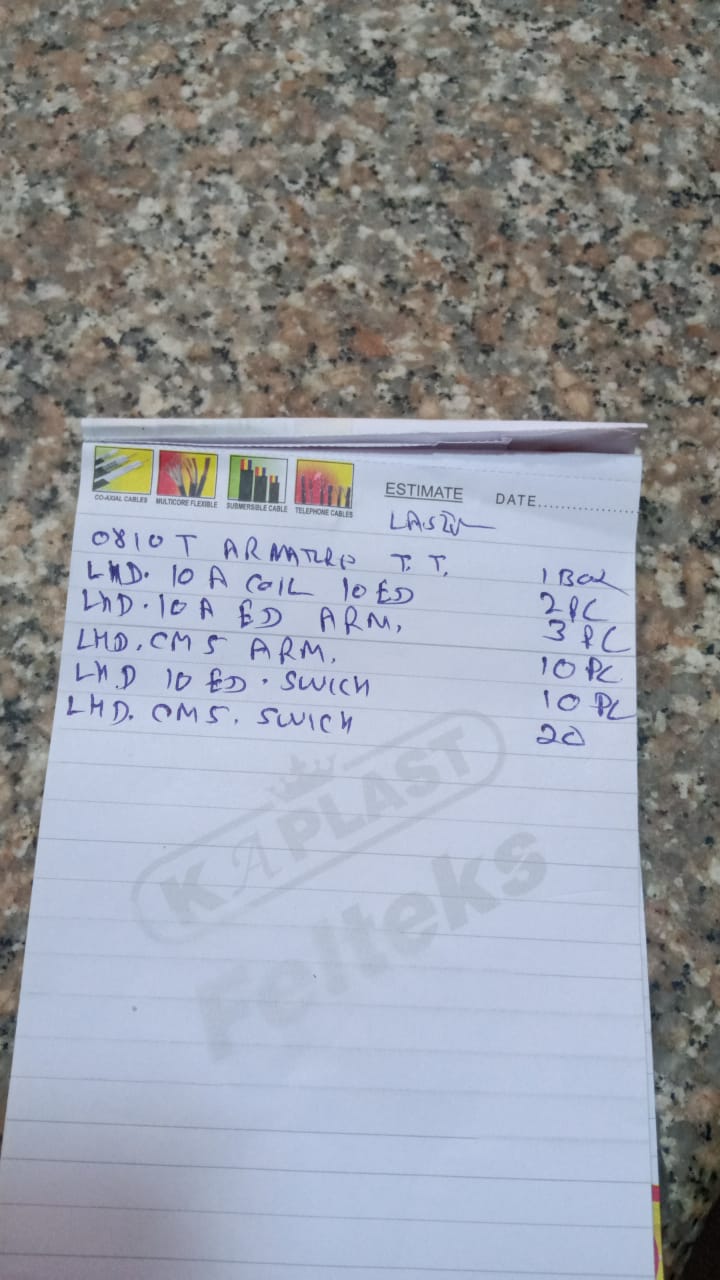 CO-AXIAL CABLES MULTICORE FLEXIBLE SUBMERSIBLE CABLE TELEPHONE CABLES
ESTIMATE DATE
0810 T ARMATURE T.T. 1 BOX
LHD. 10 A COIL 10 ED 2 PC
LHD. 10 A ED ARM, 3 PC
LHD. CM5 ARM. 10 PC
LHD 10 ED. SWICH 10 PC
LHD. CM5. SWICH 20
KAPLAST
Felteks